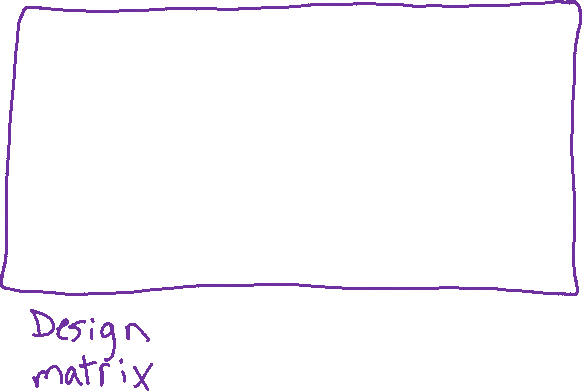 Design
matrix